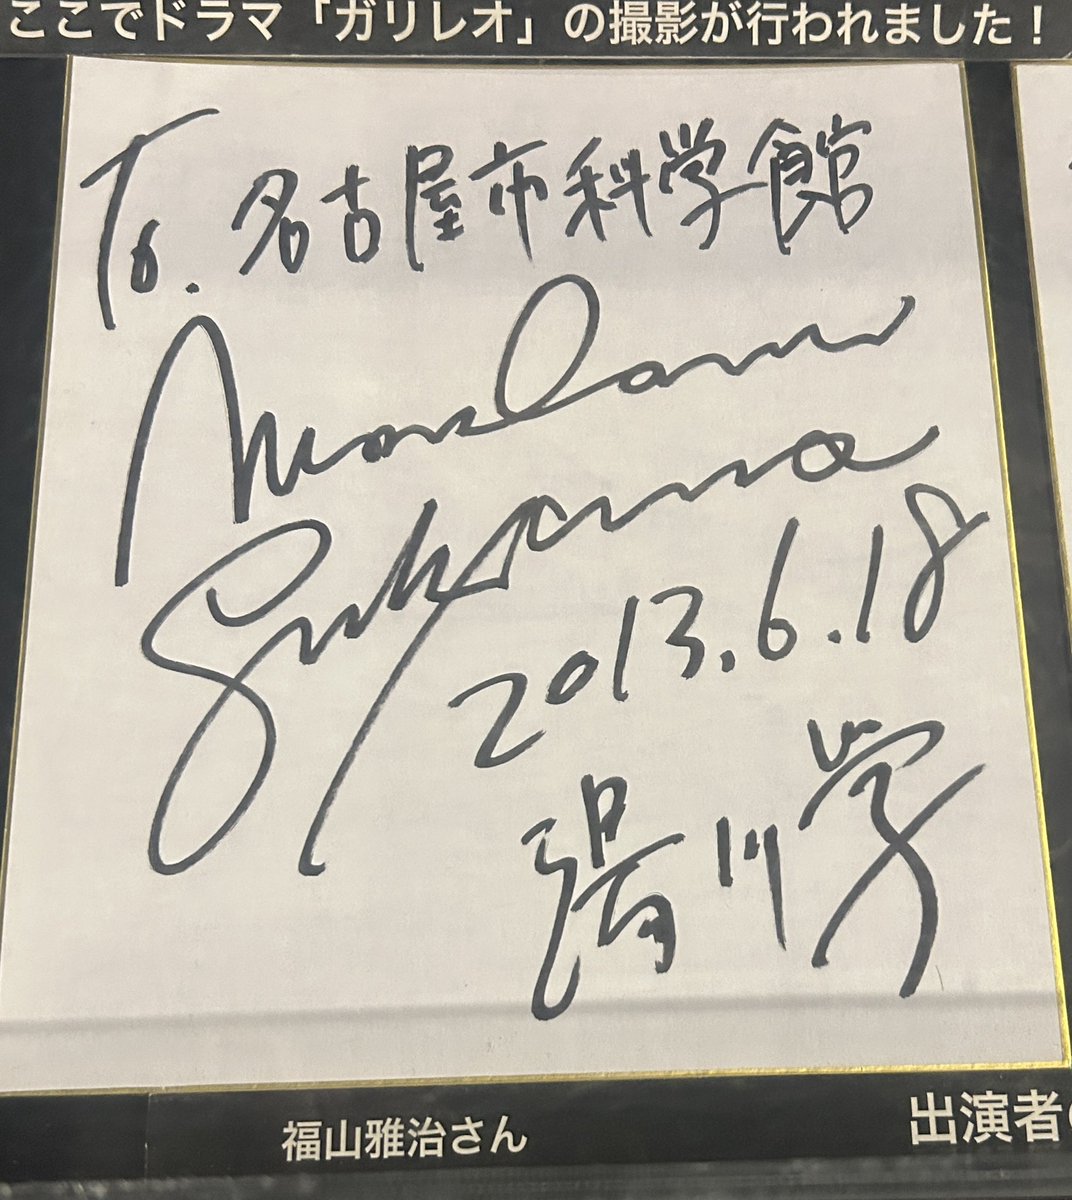 ここでドラマ「ガリレオ」の撮影が行われました!
To. 名古屋市科学館
2013.6.18
湯川学
福山雅治さん
出演者